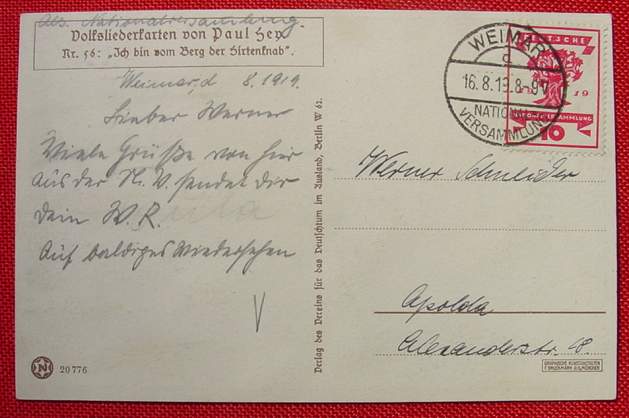 Nationalversammlung.
Volksliederkarten von Paul Hey
Nr. 56: „Ich bin vom Berg der Hirtenknab“.
Weimar, d 8. 1919.
Lieber Werner
Viele Grüße von hier
aus der N. V. sendet dir
dein W. R.
Auf baldiges Wiedersehen
20776
Verlag des Vereins für das Deutschtum im Ausland, Berlin W 62.
WEIMAR
16.8.19.8-9V
NATIONAL
VERSAMMLUNG
10
Werner Schneider
Apolda
Alexanderstr. 48
GRAPHISCHE KUNSTANSTALTEN
F. BRUCKMANN A.G. MÜNCHEN